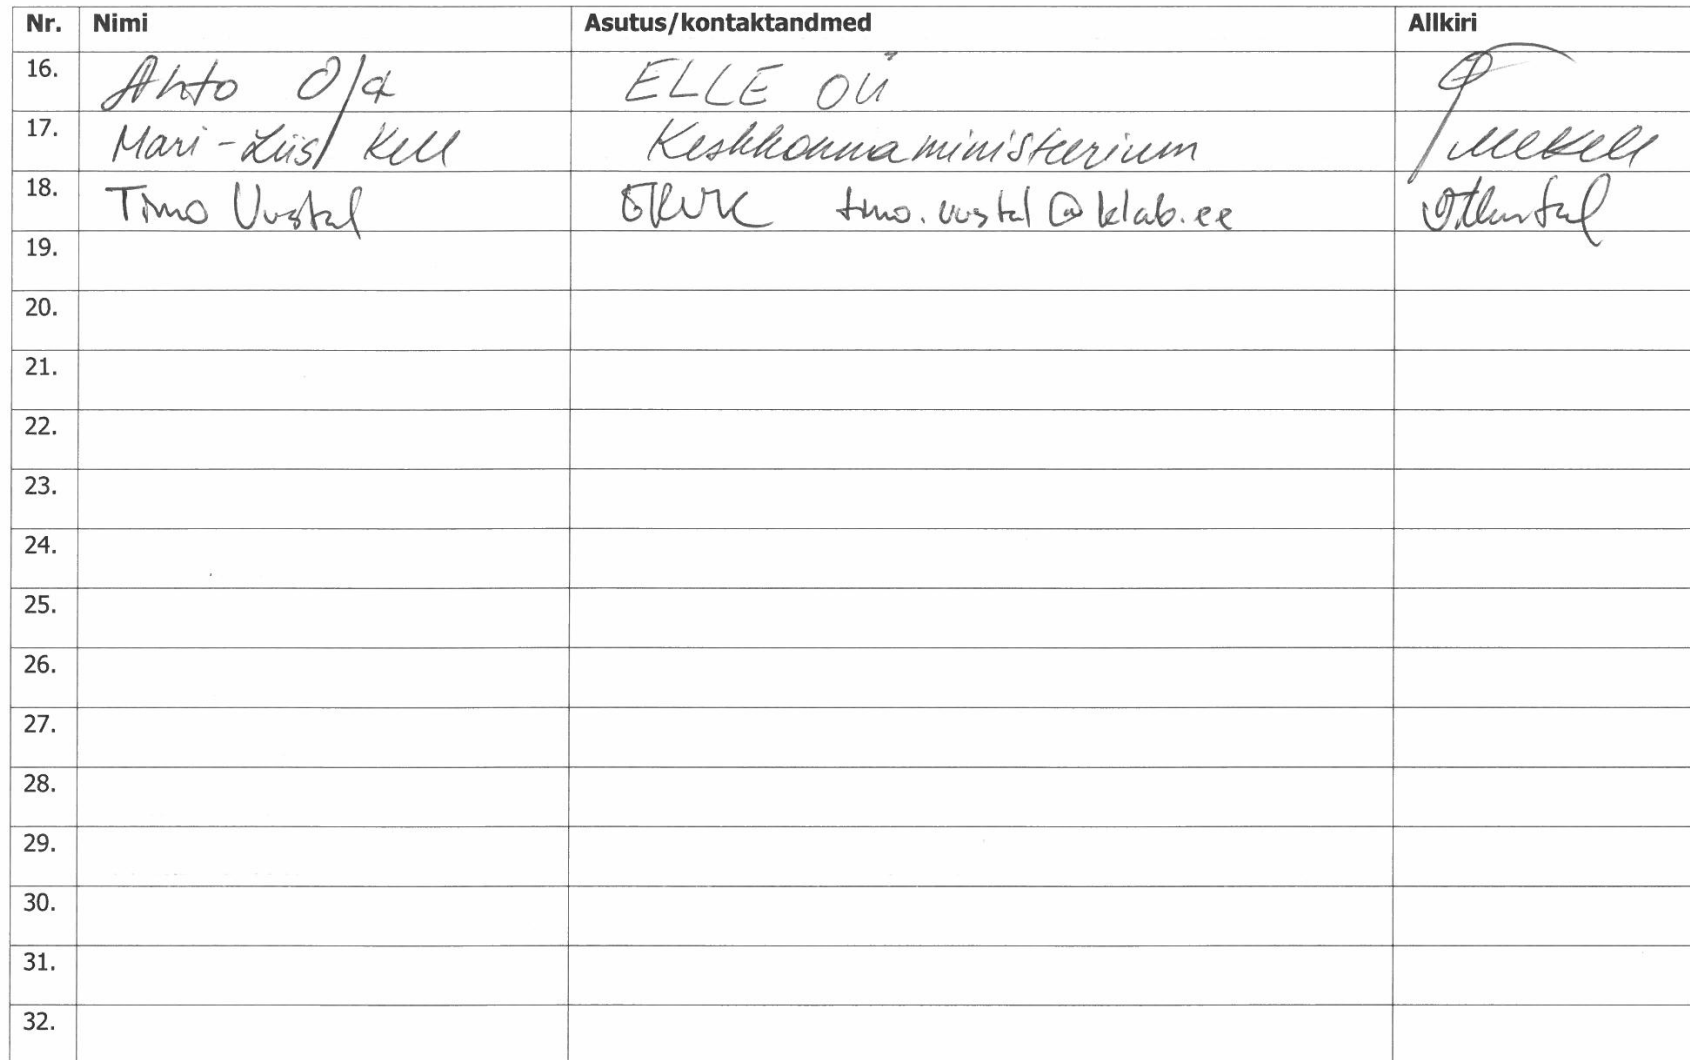 Nr. Nimi Asutus/kontaktandmed Allkiri
16. Ahto Oja ELLE OÜ
17. Mari-Liis Kell Keskkonnaministeerium
18. Timo Uustal EKUK timo.uustal@klab.ee
19.
20.
21.
22.
23.
24.
25.
26.
27.
28.
29.
30.
31.
32.